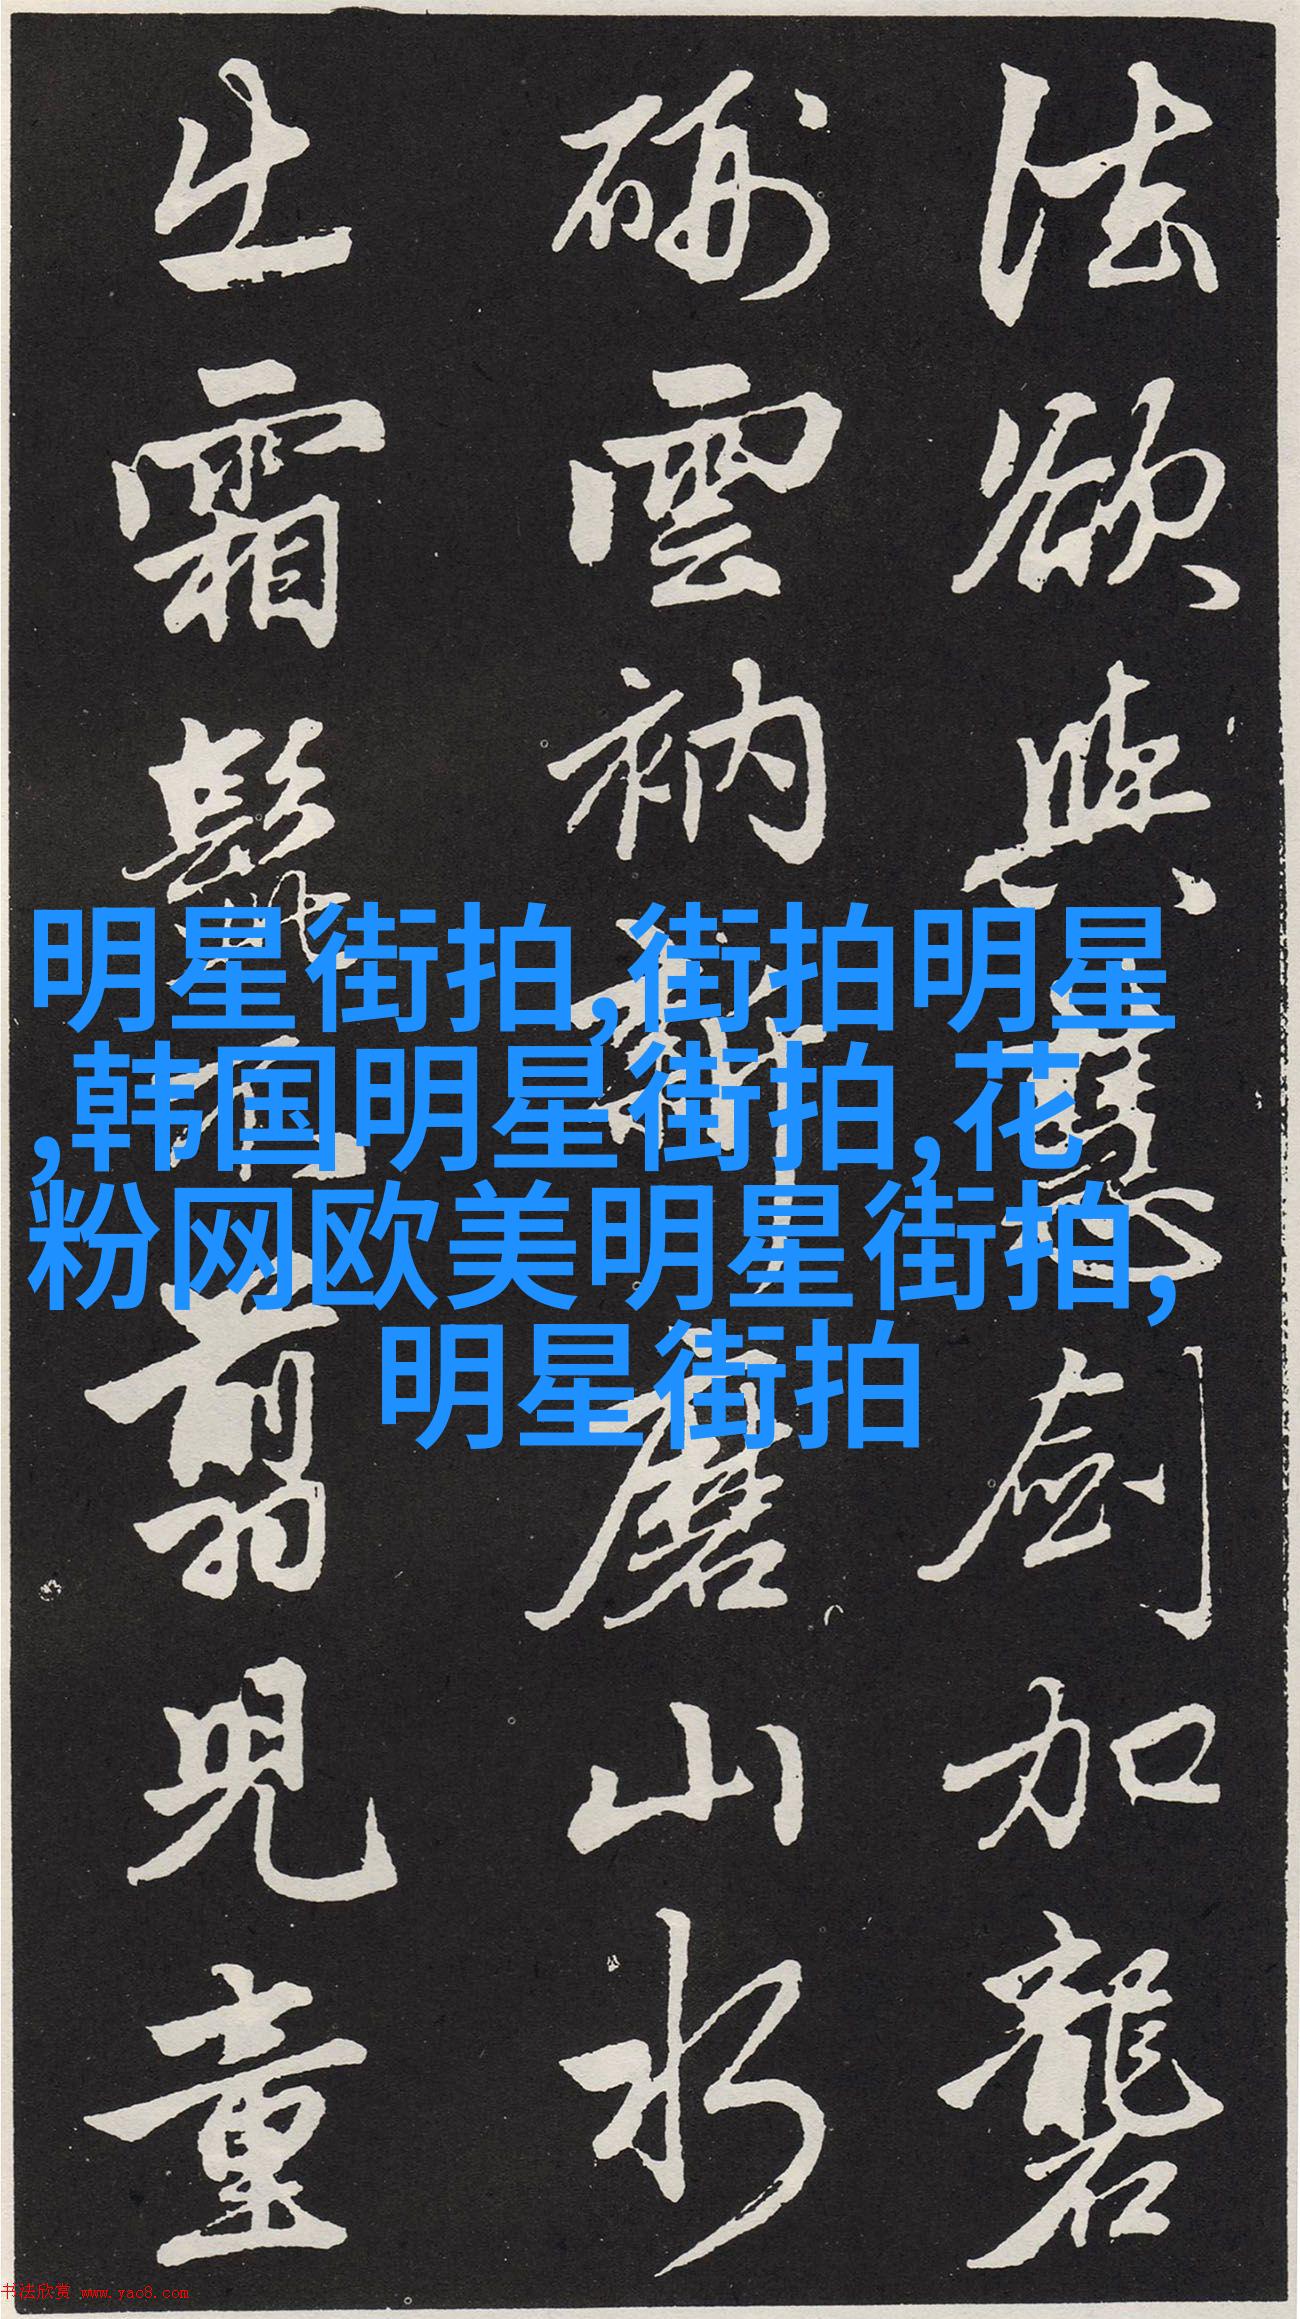 法欲與慧劍加礱
硎雲衲新磨山水
出霜髭不翦兒童
明星街拍,街拍明星
,韩国明星街拍,花
粉网欧美明星街拍,
明星街拍
书法欣赏 www.yac8.com